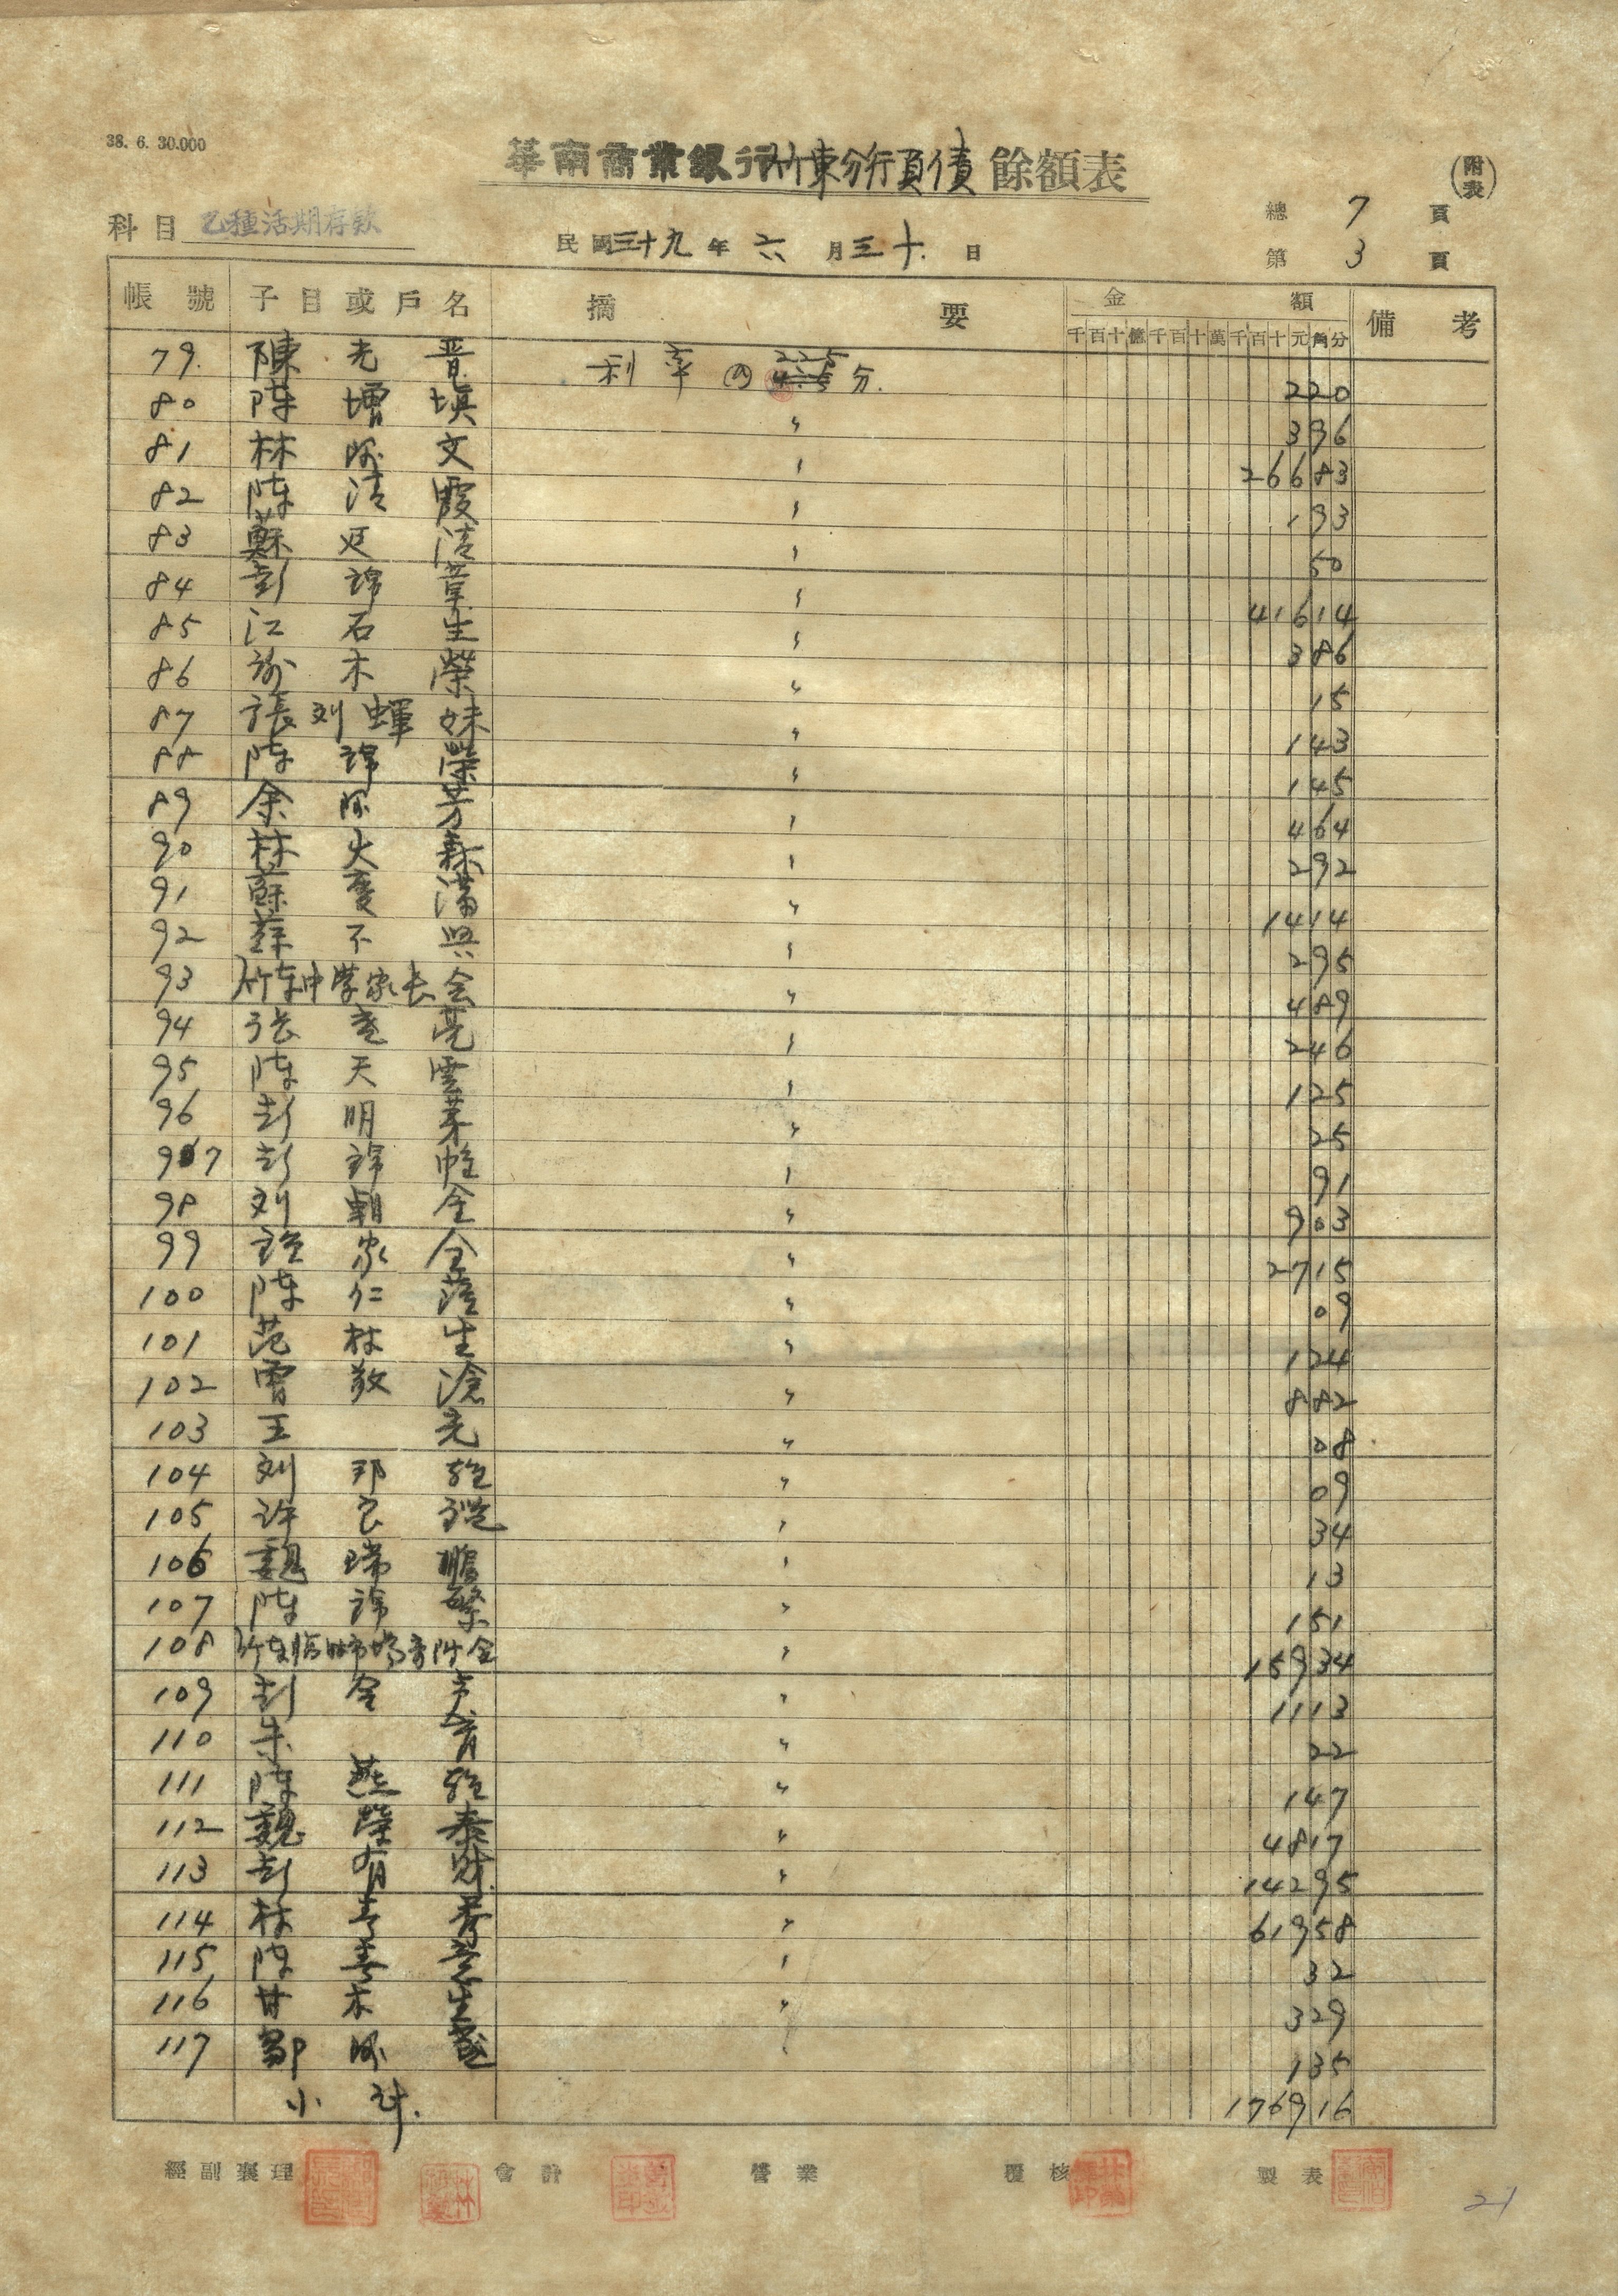 38. 6. 30.000
華南商業銀行竹東分行負債餘額表
(附表)
科目 乙種活期存款
民國三十九年六月三十日
總 7 頁
第 3 頁
帳號 子目或戶名 摘要 金額 備考
千百十億千百十萬千百十元角分
79. 陳光晋 利率 225 4.5 分. 220
80 陳增塡 〃 396
81 林阿文 〃 26683
82 陳清霞 〃 193
83 蘇廷清 〃 50
84 彭錦章 〃 41614
85 江石生 〃 386
86 木榮 〃 15
87 張刘妹 〃 143
88 陳錦榮 〃 145
89 余阿芳 〃 464
90 林火森 〃 292
91 蘇滿 〃 1414
92 蘇不興 〃 295
93 竹東中学家长会 〃 489
94 張亮 〃 246
95 陳天雲 〃 125
96 彭明 〃 25
97 彭錦 〃 91
98 刘朝全 〃 903
99 家全 〃 2715
100 陳仁 〃 09
101 范林生 〃 124
102 曾敬滄 〃 882
103 王光 〃 08
104 刘邦 〃 09
105 許良 〃 34
106 魏瑞鵬 〃 13
107 陳錦繁 〃 151
108 竹東臨時市場寄附金 〃 15934
109 彭金声 〃 1113
110 朱育 〃 22
111 陳燕 〃 147
112 魏榮泰 〃 4817
113 彭有財. 〃 14295
114 林 〃 61958
115 陳 〃 32
116 甘木生 〃 329
117 鄒阿盛 〃 135
小計. 176916
經副襄理 會計 營業 覆核 製表
21